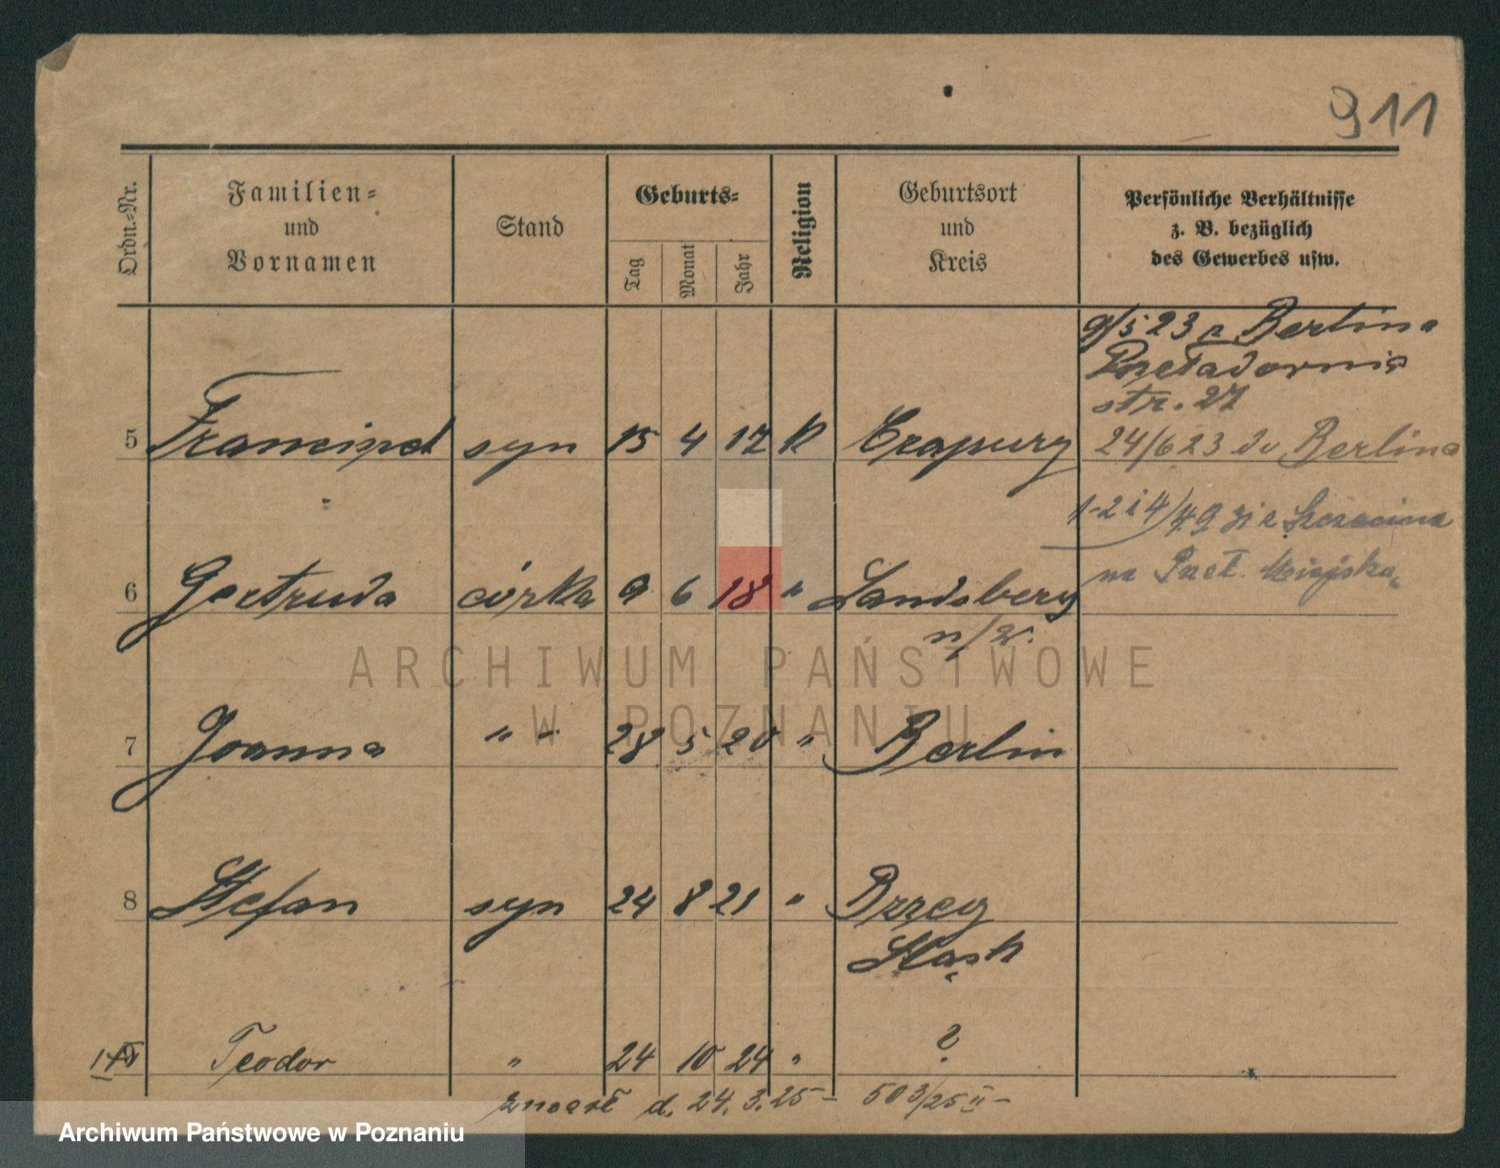 911
Ordn.-Nr.
Familien-
und
Vornamen
Stand
Geburts-
Tag
Monat
Jahr
Religion
Geburtsort
und
Kreis
Persönliche Verhältnisse
z. B. bezüglich
des Gewerbes usw.
9/5 23 z Berlina
str. 27
5 syn 15 4 17 k
24/6 23 do Berlina
6 Gertruda córka 9 6 18 " Landsberg
n/W.
7 Joanna " - 28 5 20 " Berlin
8 Stefan syn 24 8 21 " Brzeg
Śląsk
Teodor " 24 10 24 " ?
d. 24.3.25 - 503/25 II -
ARCHIWUM PAŃSTWOWE
W POZNANIU
Archiwum Państwowe w Poznaniu